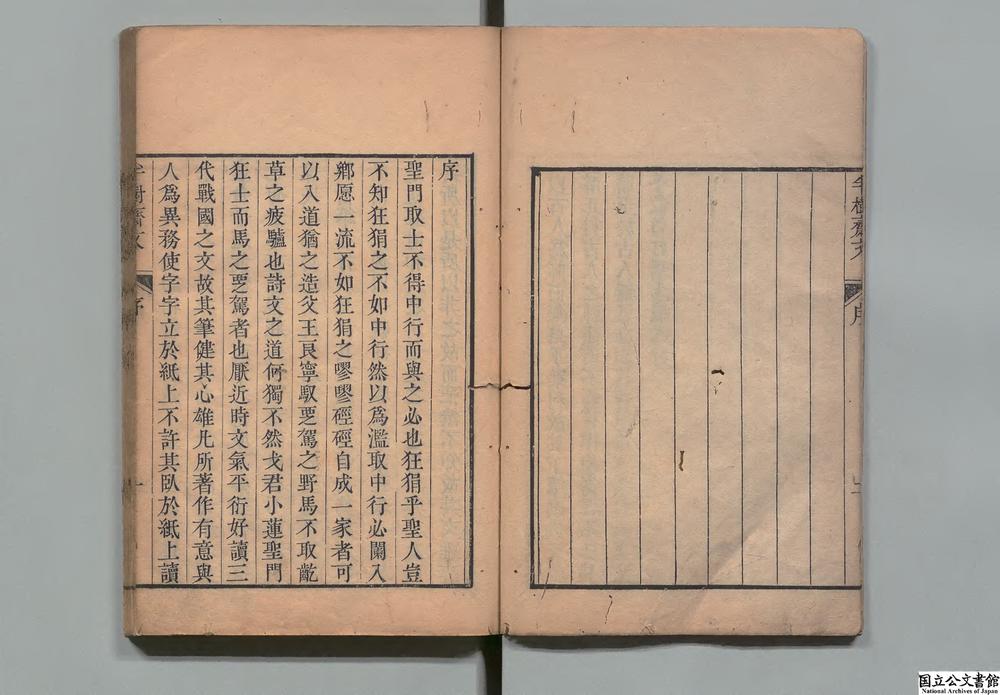 序
聖門取士不得中行而與之必也狂狷乎聖人豈
不知狂狷之不如中行然以為濫取中行必闌入
鄉愿一流不如狂狷之嘐嘐硜硜自成一家者可
以入道猶之造父王良寧馭覂駕之野馬不取齕
草之疲驢也詩文之道何獨不然戈君小蓮聖門
狂士而馬之覂駕者也厭近時文氣平衍好讀三
代戰國之文故其筆健其心雄凡所著作有意與
人爲異務使字字立於紙上不許其臥於紙上讀
序
一
樹齋文
序
国立公文書館
National Archives of Japan